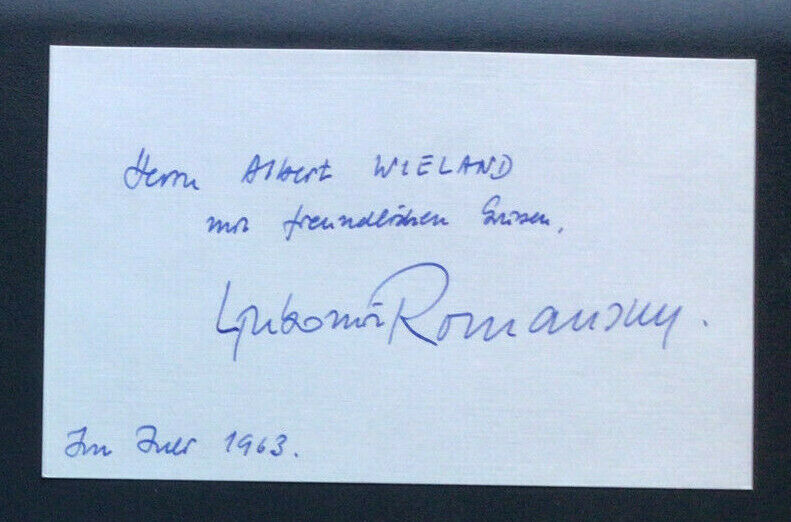 Herrn Albert WIELAND
mit freundlichen Grüssen,
Ljubomir Romansky.
Im Juli 1963.